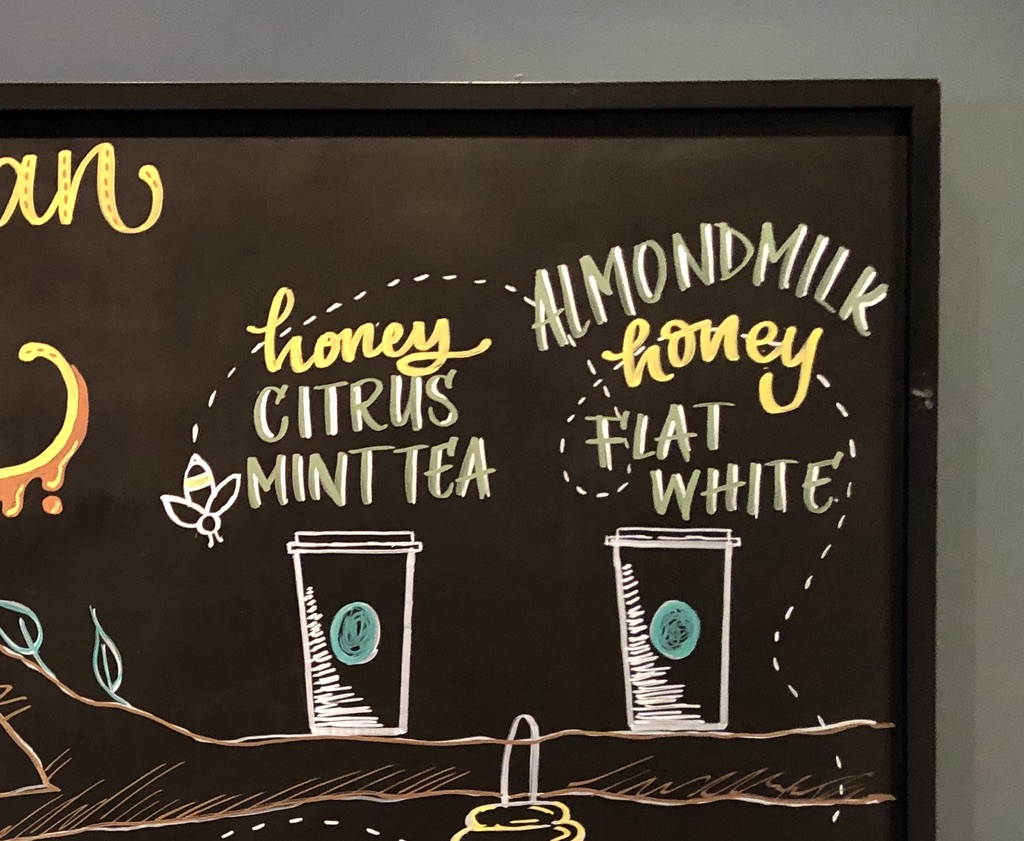 an
honey
CITRUS
MINT TEA
ALMONDMILK
honey
FLAT
WHITE